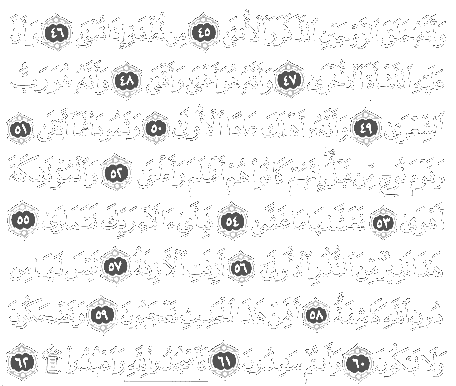 وَأَنَّهُ خَلَقَ الزَّوْجَيْنِ الذَّكَرَ وَالْأُنثَى ٤٥ مِن نُّطْفَةٍ إِذَا تُمْنَى ٤٦ وَأَنَّ
عَلَيْهِ النَّشْأَةَ الْأُخْرَى ٤٧ وَأَنَّهُ هُوَ أَغْنَى وَأَقْنَى ٤٨ وَأَنَّهُ هُوَ رَبُّ
الشِّعْرَى ٤٩ وَأَنَّهُ أَهْلَكَ عَادًا الْأُولَى ٥٠ وَثَمُودَ فَمَا أَبْقَى ٥١
وَقَوْمَ نُوحٍ مِّن قَبْلُ إِنَّهُمْ كَانُوا هُمْ أَظْلَمَ وَأَطْغَى ٥٢ وَالْمُؤْتَفِكَةَ
أَهْوَى ٥٣ فَغَشَّاهَا مَا غَشَّى ٥٤ فَبِأَيِّ آلَاءِ رَبِّكَ تَتَمَارَى ٥٥
هَذَا نَذِيرٌ مِّنَ النُّذُرِ الْأُولَى ٥٦ أَزِفَتِ الْآزِفَةُ ٥٧ لَيْسَ لَهَا مِن
دُونِ اللَّهِ كَاشِفَةٌ ٥٨ أَفَمِنْ هَذَا الْحَدِيثِ تَعْجَبُونَ ٥٩ وَتَضْحَكُونَ
وَلَا تَبْكُونَ ٦٠ وَأَنتُمْ سَامِدُونَ ٦١ فَاسْجُدُوا لِلَّهِ وَاعْبُدُوا ۩ ٦٢